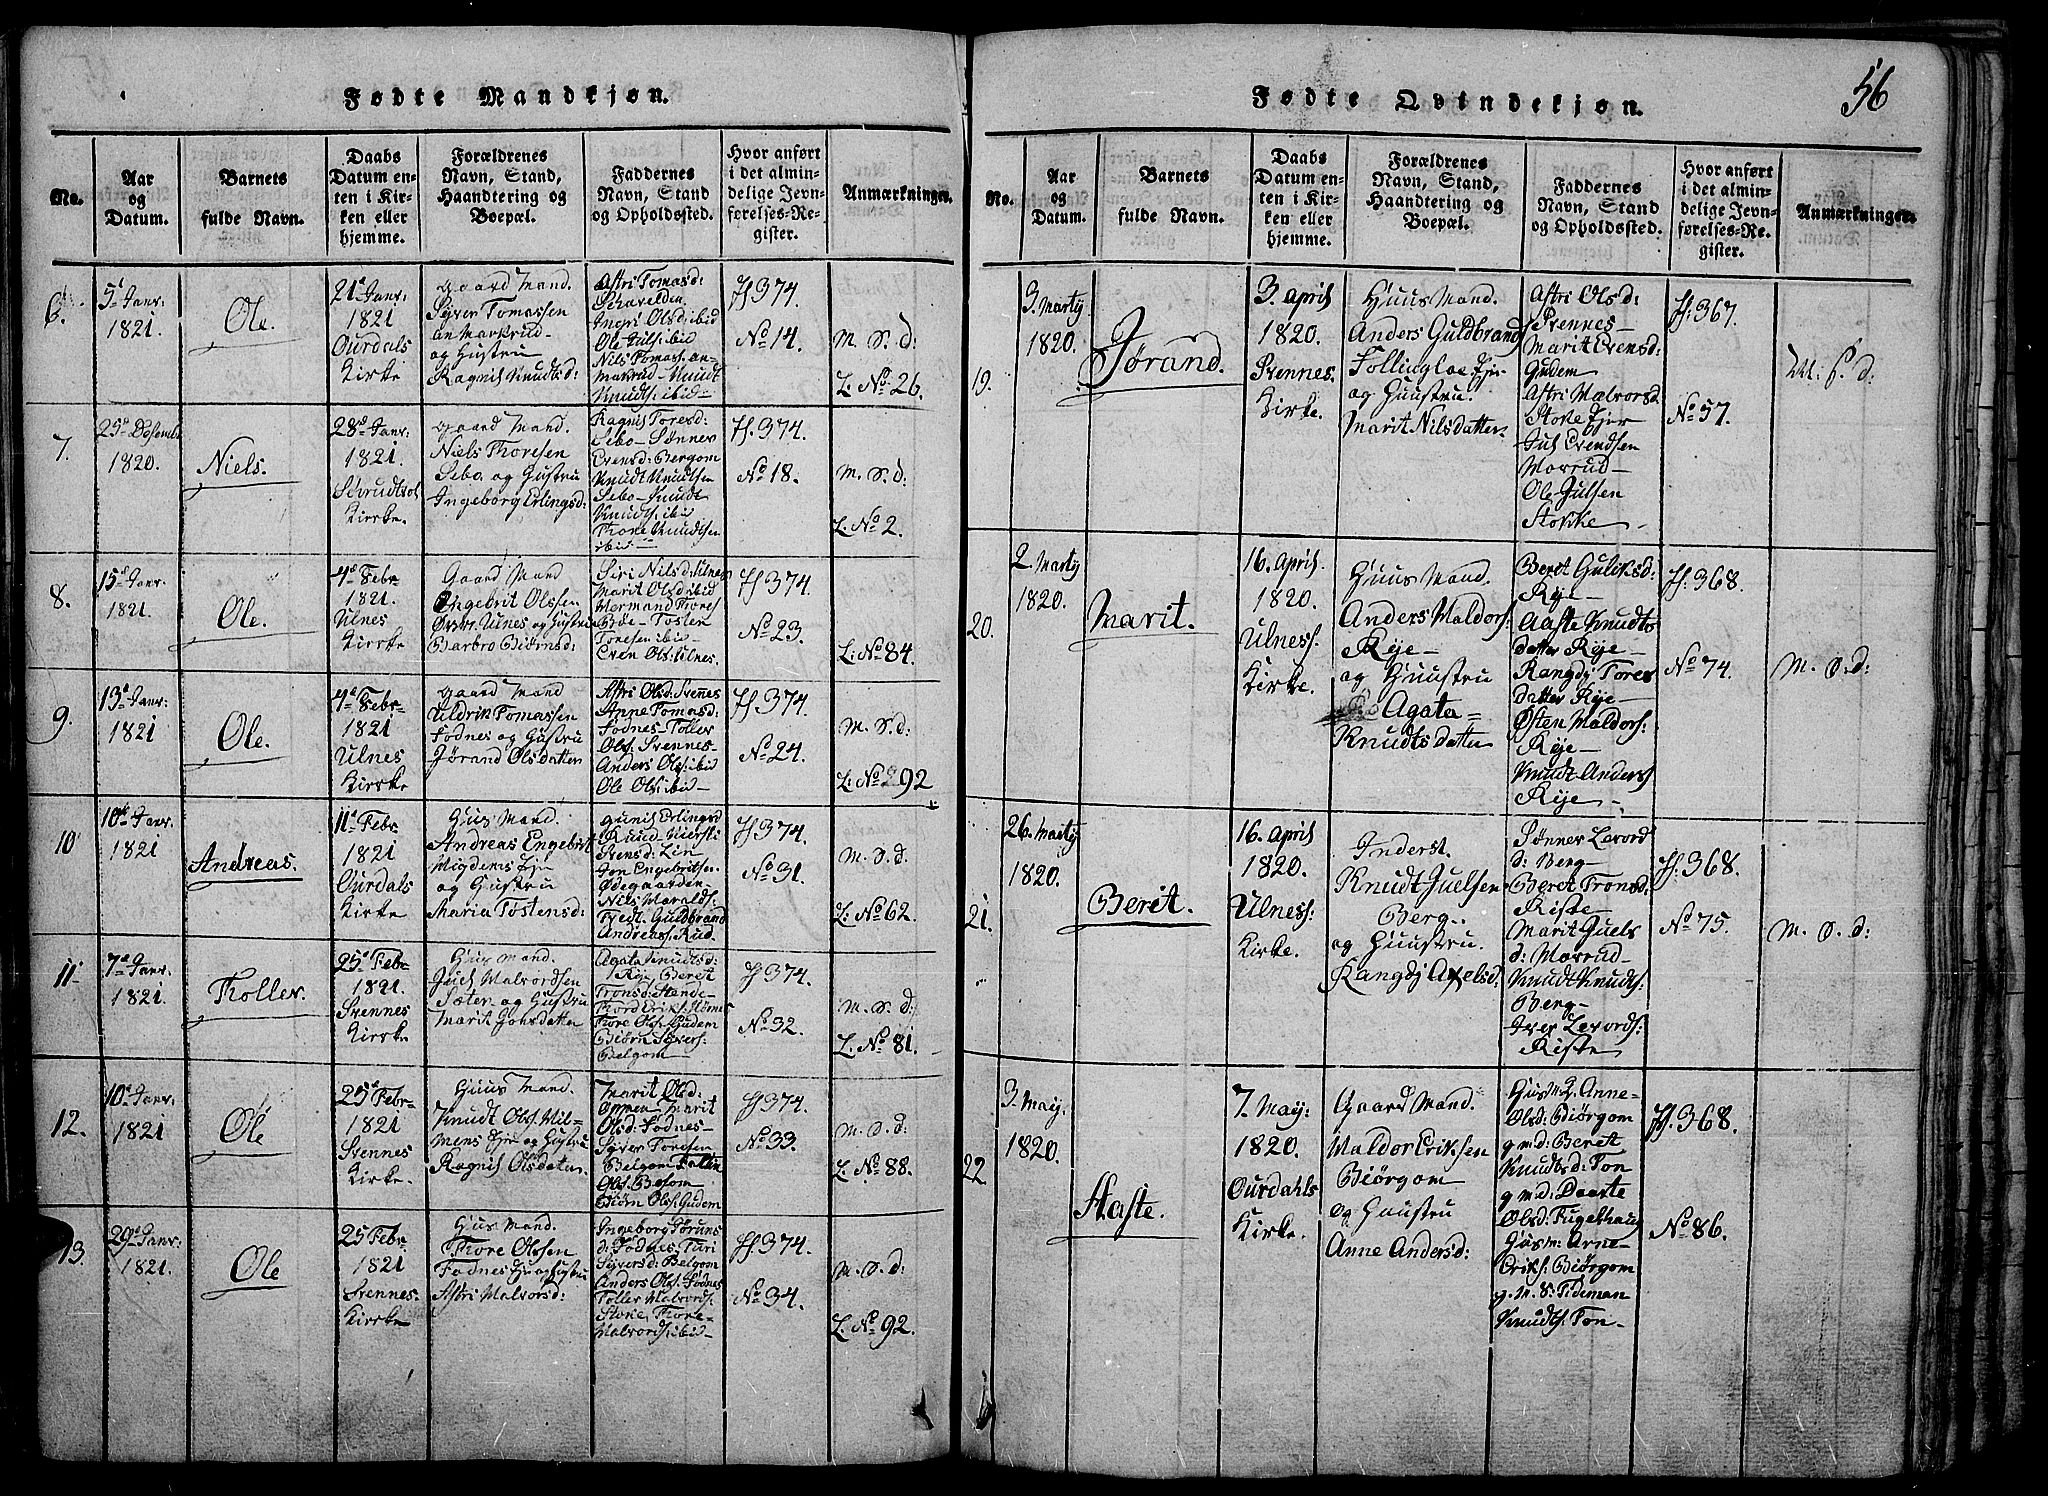 Fødte Mandkjøn.
No.
Aar
og
Datum.
Barnets
fulde Navn.
Daabs
Datum en-
ten i Kir-
ken eller
hjemme.
Forældrenes
Navn, Stand,
Haandtering og
Boepæl.
Faddernes
Navn, Stand
og Opholdssted.
Hvor anført
i det almin-
delige Jevn-
førelses-Re-
gister.
Anmærkninger.
6.
5te Janr:
1821.
Ole.
21de Janr:
1821
Ourdals
Kirke
Gaard Mand.
Syver Tomassen
Markrud
og Hustru
Ragnil Knudtsd:
Astri Tomasd:
Ingri Olsd: ibid
Ole Juls: ibid
Nils Tomass:
Markrud Knudt
Knudts: ibid
ff 374.
No 14.
M. S. d:
L: No 26.
7.
25de Desemb:
1820.
Niels.
28de Janr:
1821.
Kirke.
Gaard Mand.
Niels Thoresen
Sebo og Hustru
Ingeborg Erlingsd:
Ragnil Toresd:
Sebo Sønner
Evensd: Bergom
Knudt Knudtsen
Sebo Knudt
Knudts: ibid
Thore Knudtsen
ibid
ff. 374.
No 18.
M. S. d:
L. No 2.
8.
15de Janr:
1821.
Ole.
4de Febr
1821.
Ulnes
Kirke
Gaard Mand
Engebrit Olssen
Ulnes og Hustru
Barbro Biørnsd:
Siri Nilsd: Ulnes
Marit Olsd: ibid
Hermand Thores
Bøe Tosten
Toresen ibid
Even Ols: Ulnes.
ff 374.
No 23.
L: No 84.
9.
13de Janr:
1821
Ole.
4de Febr
1821
Ulnes
Kirke
Gaard Mand
Uldrik Tomassen
Fodnes og Hustru
Jørand Olsdatter
Astri Olsd: Svenes
Anne Tomasd:
Fodnes Toller
Ols: Svennes
Anders Ols: ibid
Ole Ols: ibid
ff 374.
No 24.
M. S. d:
L: No 292
10
10de Janr.
1821
Andreas.
11te Febr
1821
Ourdals
Kirke
Huus Mand.
Andreas Engebrit
Migdems Eje
og Hustru
Maria Tostensd:
Gunil Erlingsd
Rund
Svensd: Lin
Jon Engebritsen
Ødegaarden
Nils Haralds:
Guldbrand
Andreass: Rud.
ff 374.
No 31.
M. S. d.
L: No 62.
11
7de Janr.
1821.
Toller.
25de Febr
1821.
Svennes
Kirke
Huus Mand.
Juel Halvordsen
Sæter og Hustru
Marit Johsdatter
Agata Knudtsd:
Rye Beret
Tronsd:
Thord Eriks:
Tore Ols: Gudem
Biørn Syvers:
Belgom
ff 374.
No 32.
M. S. d:
L. No 81.
12.
10de Janr.
1821
Ole
25de Febr
1821
Svennes
Kirke.
Huus Mand.
Knudt Ols: Mil-
mens Eje og Hustru
Ragnil Olsdatter
Marit Olsd:
Oppen Marit
Olsd: Fodnes
Syver Toresen
Belgom
Ols: Besom
Biørn Ols: Gudem
ff 374.
No 33.
M. O. d:
L. No 88.
13.
29de Janr:
1821.
Ole
25 Febr
1821
Svennes
Kirke
Huus Mand.
Thore Olssen
Fodnes og Hustru
Astri Halvorsd:
Ingeborg
d: Fodnes Turi
Syversd: Belgom
Anders Ols: Fodnes
Toller Halvords:
Stoke Thore
Halvords: ibid
ff 374.
No 34.
M. O. d:
L. No 92.
Fødte Qvindekjøn.
56
No.
Aar
og
Datum.
Barnets
fulde Navn.
Daabs
Datum en-
ten i Kir-
ken eller
hjemme.
Forældrenes
Navn, Stand,
Haandtering og
Boepæl.
Faddernes
Navn, Stand
og Opholdssted.
Hvor anført
i det almin-
delige Jevn-
førelses-Re-
gister.
Anmærkninger.
19.
3. Marty
1820.
Jørand.
3. April
1820.
Svennes.
Kirke.
Huus Mand.
Anders Guldbrand
Follingloe Eje
og Huustru.
Marit Nilsdatter
Astri Olsd:
Svennes
Marit Evensd:
Gudem
Astri Halvorsd.
Stoke Ejer
Jul Evendsen
Morrud
Ole Julsen
Stokke
ff: 367.
No 57.
M. S. d:
20.
2. Marty
1820.
Marit.
16. April
1820.
Ulness.
Kirke.
Huus Mand.
Anders Haldors:
Rye
og Huustru
Agata
Knudts datter
Beret Guliksd:
Rye
Aaste Knudts
datter Rye
Rangdj Tores
datter Rye
Østen Haldors:
Rye
Knudt Anders:
Rye
ff: 368.
No 74.
M. O. d:
21.
26. Marty
1820.
Berit.
16. April
1820.
Ulness:
Kirke.
Inderst.
Knudt Juelsen
Berg.
og Huustru.
Rangdj Axelsd:
Sønner Levord
d: Berg
Beret Tronsd:
Riste
Marit Juels
d: Morrud
Knudt Knudts:
Berg
Iver Levords:
Riste
ff: 368.
No 75.
M. O. d:
22
3. Maij.
1820.
Aaste.
7. Maij.
1820.
Ourdahls
Kirke.
Gaard Mand.
Haldor Eriksen
Biørgom
og Huustru
Anne Andersd:
Huus m: q. Anne
Olsd: Biørgom
g m d: Beret
Knudtsd: Ton
g m d: Daarte
Olsd: Fugelhaug
Huus m: Arne
Eriks: Biørgom
g. M. S: Tideman
Knudts: Ton
ff. 368.
No 86.